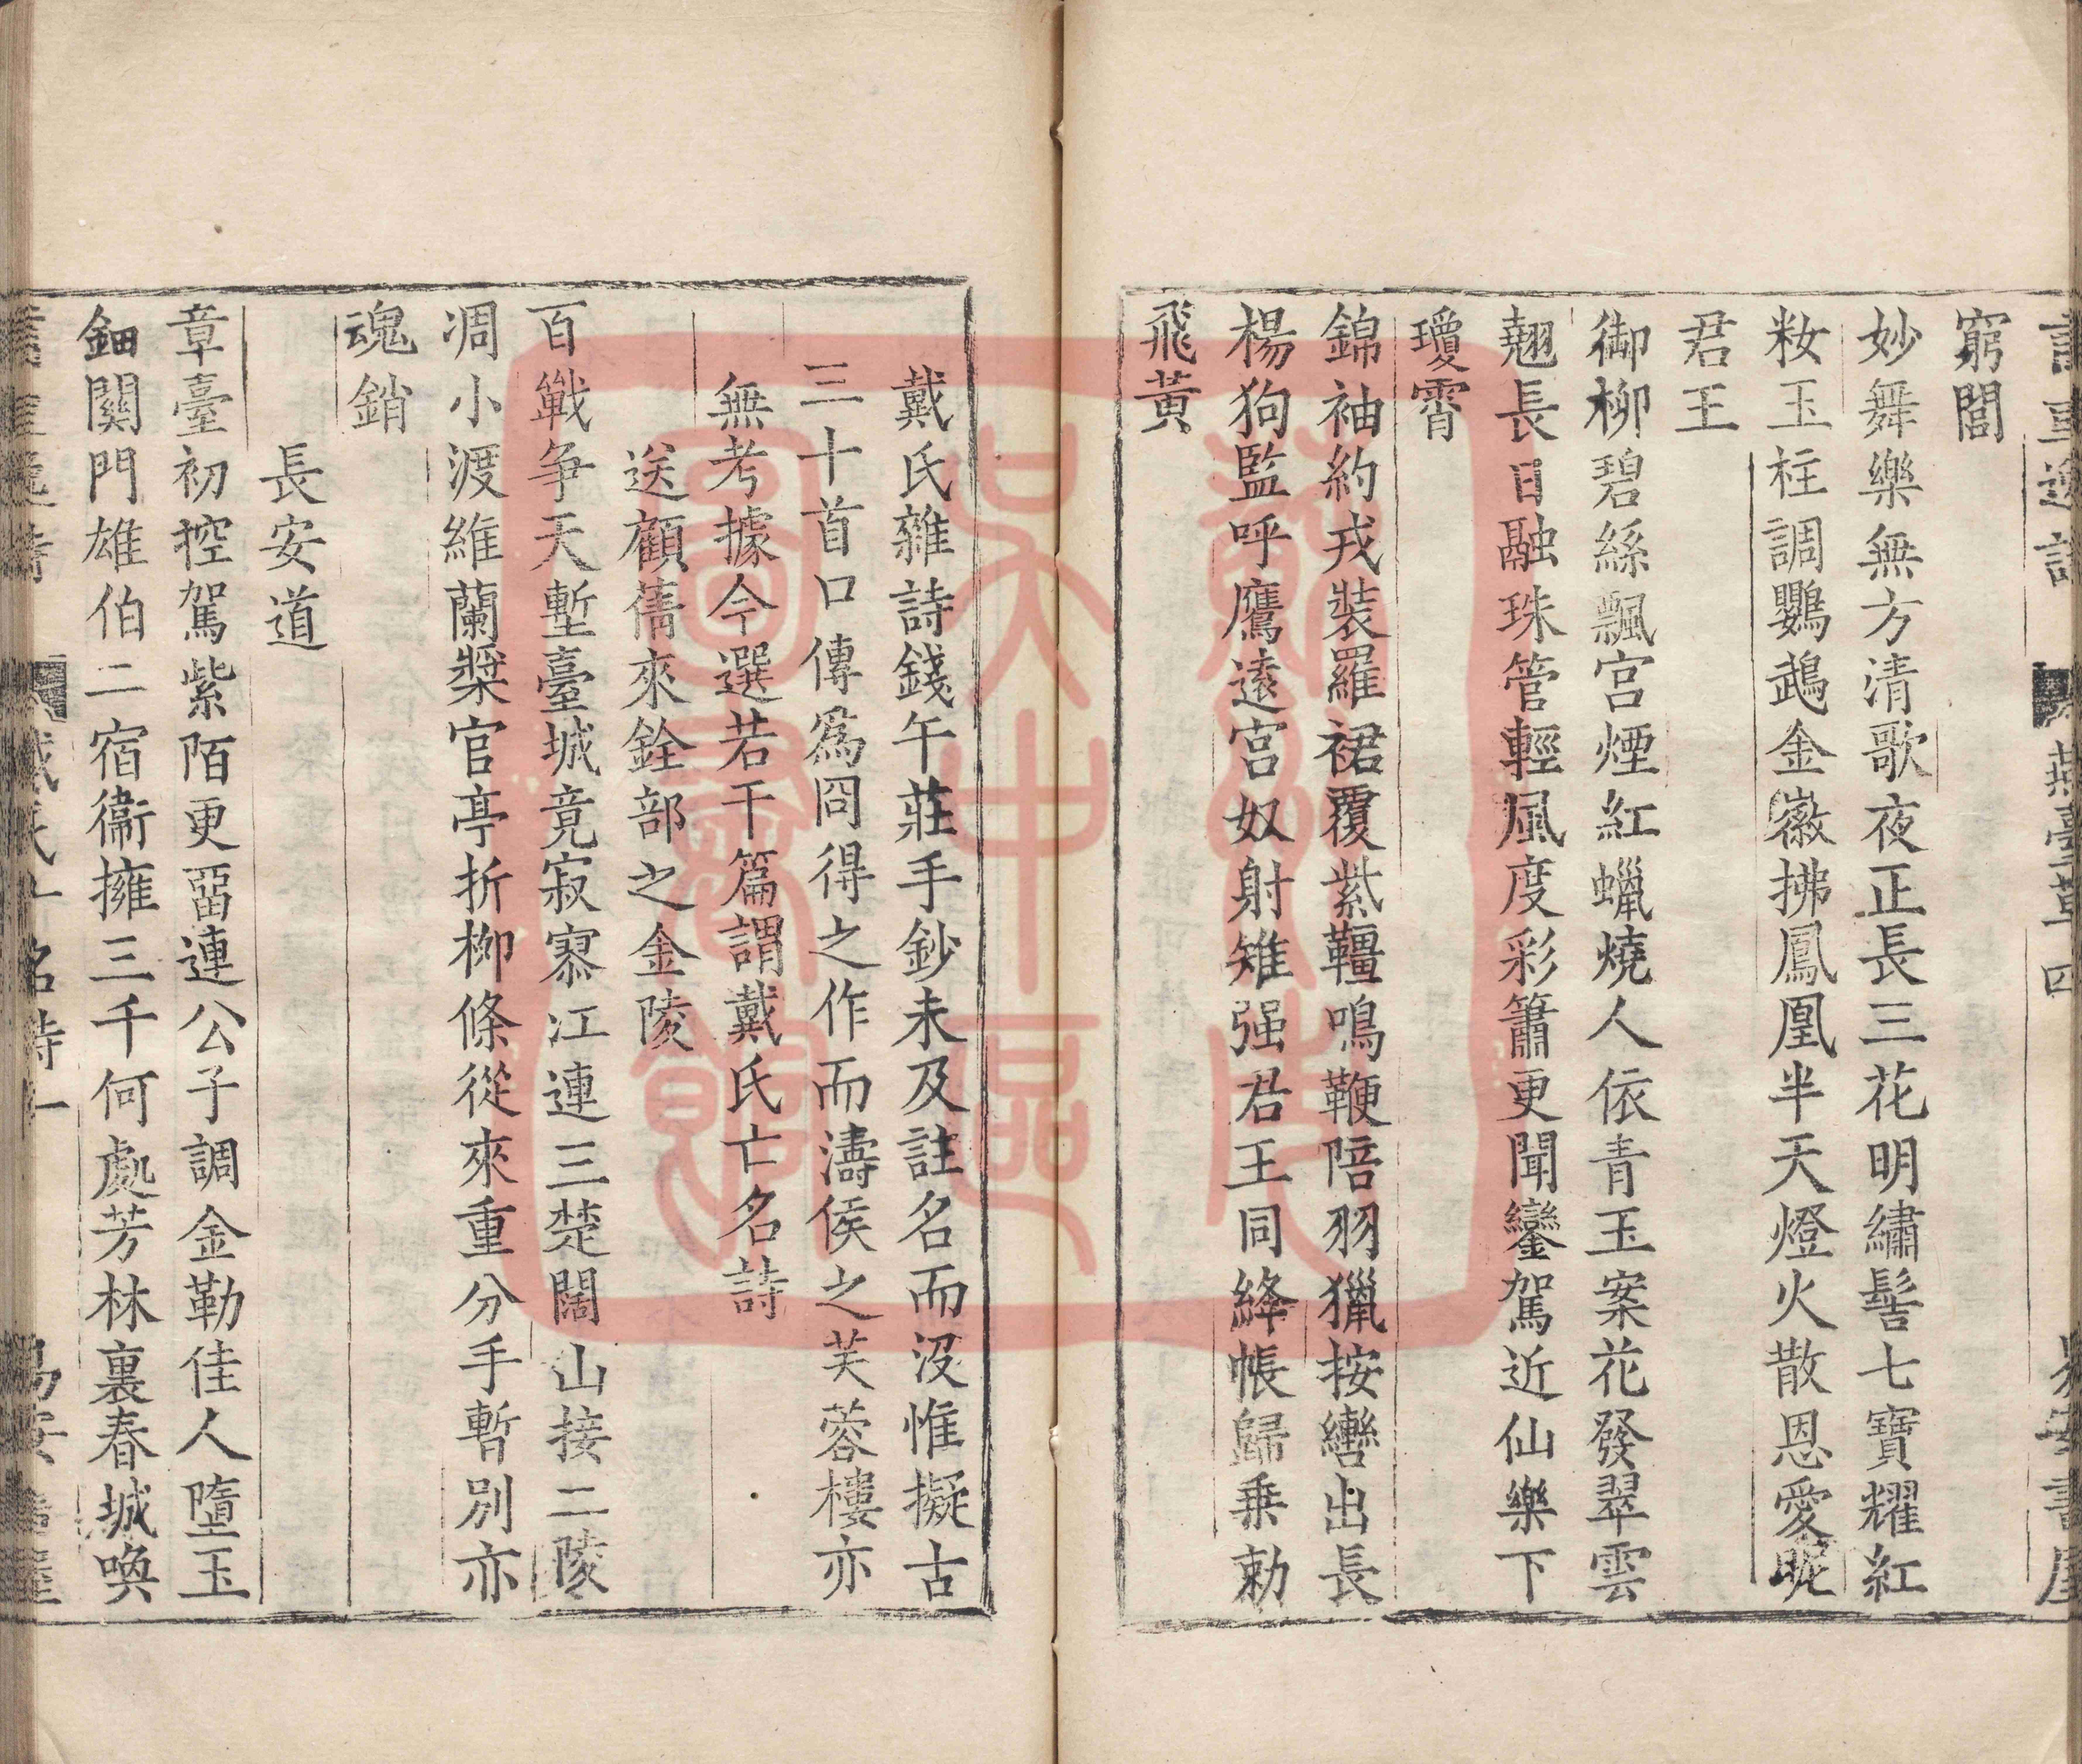 燕臺草 四
窮閻
妙舞樂無方清歌夜正長三花明繡髻七寶耀紅
妝玉柱調鸚鵡金徽拂鳳凰半天燈火散恩愛昵
君王
御柳碧絲飄宮煙紅蠟燒人依青玉案花發翠雲
翹長日融珠管輕風度彩簫更聞鑾駕近仙樂下
瓊霄
錦袖約戎裝羅裙覆紫韁鳴鞭陪羽獵按轡出長
楊狗監呼鷹遠宮奴射雉强君王同絳帳歸乗勑
飛黃
戴氏雜詩錢午莊手鈔未及註名而沒惟擬古
三十首口傳爲冏得之作而濤侯之芙蓉樓亦
無考據今選若干篇謂戴氏亡名詩
送顧蒨來銓部之金陵
百戰争天塹臺城竟寂寥江連三楚闊山接二陵
凋小渡維蘭槳官亭折柳條從來重分手暫別亦
魂銷
長安道
章臺初控駕紫陌更畱連公子調金勒佳人墮玉
鈿關門雄伯二宿衞擁三千何處芳林裏春城喚